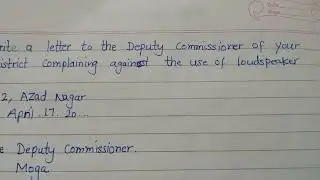 rite a letter to the Deputy Commissioner of your
istrict complaining against the use of loudspeaker
2, Azad Nagar
April 17, 20...
e Deputy Commissioner.
Moga